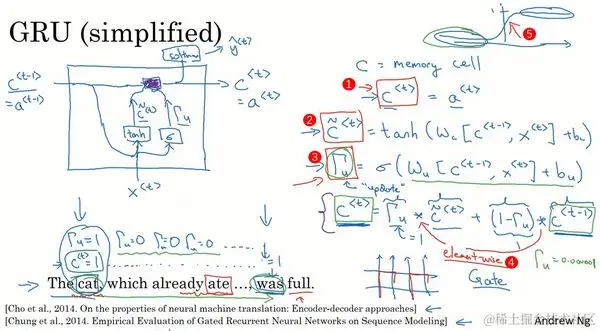 GRU (simplified)
softmax
ŷ<t>
C<t-1>
= a<t-1>
C<t>
= a<t>
C̃<t>
Γu
tanh
σ
x<t>
5
C = memory cell
1
C<t> = a<t>
2
C̃<t> = tanh (Wc [C<t-1>, x<t>] + bc)
3
Γu = σ (Wu [C<t-1>, x<t>] + bu)
"update"
C<t> = Γu * C̃<t> + (1-Γu) * C<t-1>
element-wise 4
Gate
Γu = 0.000001
Γu = 1
C<t> = 1
Γu = 0 Γu = 0 Γu = 0 ......
= 1
The cat, which already ate ..., was full.
[Cho et al., 2014. On the properties of neural machine translation: Encoder-decoder approaches]
[Chung et al., 2014. Empirical Evaluation of Gated Recurrent Neural Networks on Sequence Modeling]
Andrew Ng
@稀土掘金技术社区